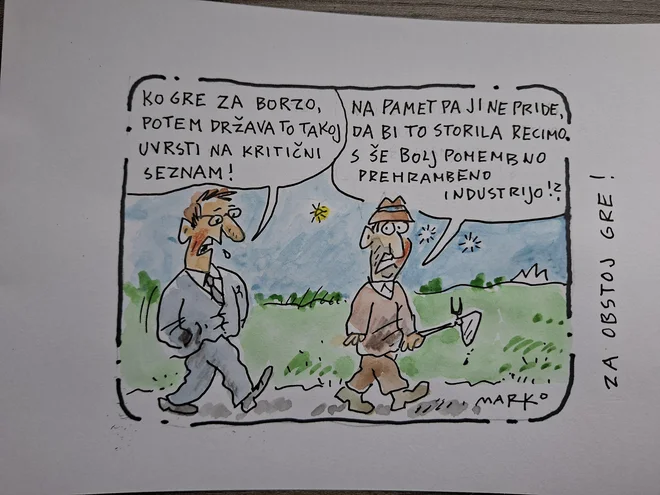 KO GRE ZA BORZO,
POTEM DRŽAVA TO TAKOJ
UVRSTI NA KRITIČNI
SEZNAM!
NA PAMET PA JI NE PRIDE,
DA BI TO STORILA RECIMO
S ŠE BOLJ POMEMBNO
PREHRAMBENO
INDUSTRIJO!?
MARKO
ZA OBSTOJ GRE!